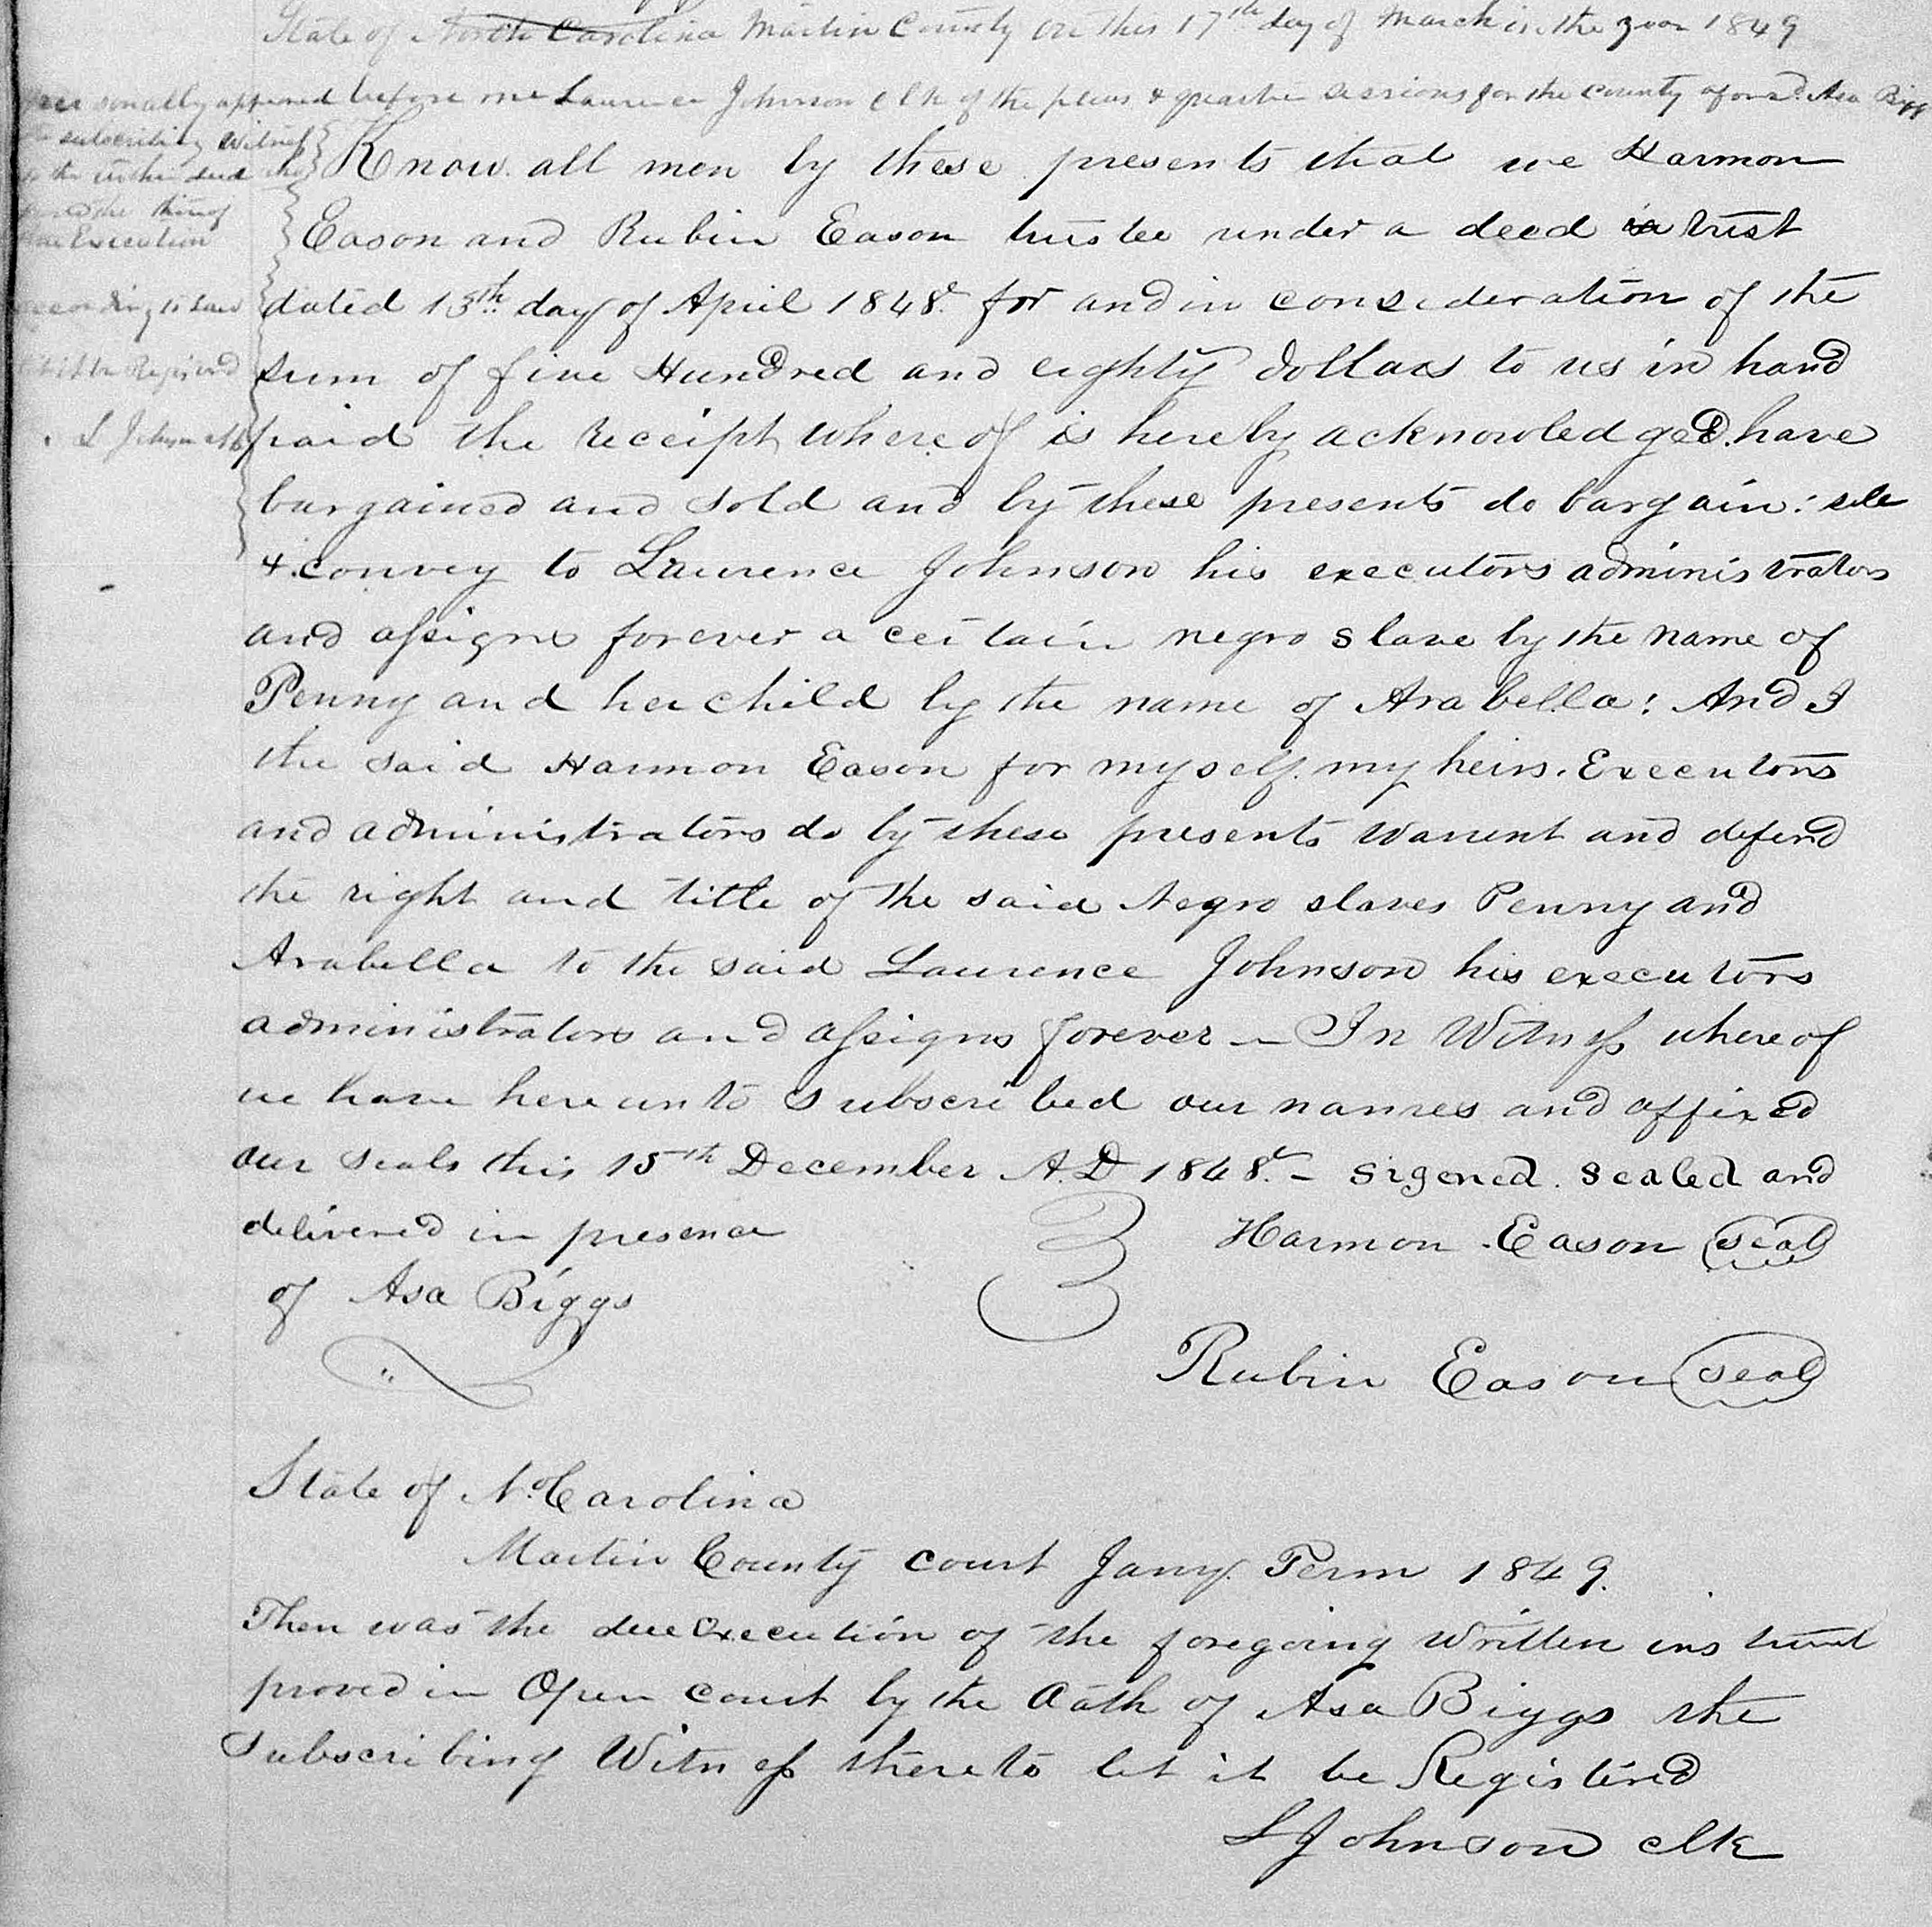 State of North Carolina Martin County On this 17th day of March in the year 1849
personally appeared before me Laurence Johnson Clk of the pleas & quarter sessions for the county aforsd. Asa Biggs
the subscribing Witness
to the within deed who
proved the
due Execution
according to Law
Let it be Registered
L Johnson clk
Know all men by these presents that we Harmon
Eason and Rubin Eason trustee under a deed in trust
dated 13th day of April 1848. for and in consideration of the
sum of five Hundred and eighty dollars to us in hand
paid the receipt whereof is hereby acknowledged. have
bargained and sold and by these presents do bargain: sele
& convey to Laurence Johnson his executors administrators
and assigns forever a certain negro slave by the name of
Penny and her child by the name of Arabella: And I
the said Harmon Eason for myself. my heirs. Executors
and administrators do by these presents warrent and defend
the right and title of the said Negro slaves Penny and
Arabella to the said Laurence Johnson his executors
administrators and assigns forever — In Witness whereof
we have hereunto subscribed our names and affixed
our seals this 15th December A.D 1848. – sigened. sealed and
delivered in presence
of Asa Biggs
Harmon Eason seal
Rubin Eason seal
State of No. Carolina
Martin County court Jany. Term 1849.
Then was the due execution of the foregoing written instrument
proved in Open court by the Oath of Asa Biggs the
Subscribing Witness thereto let it be Registered
L Johnson clk